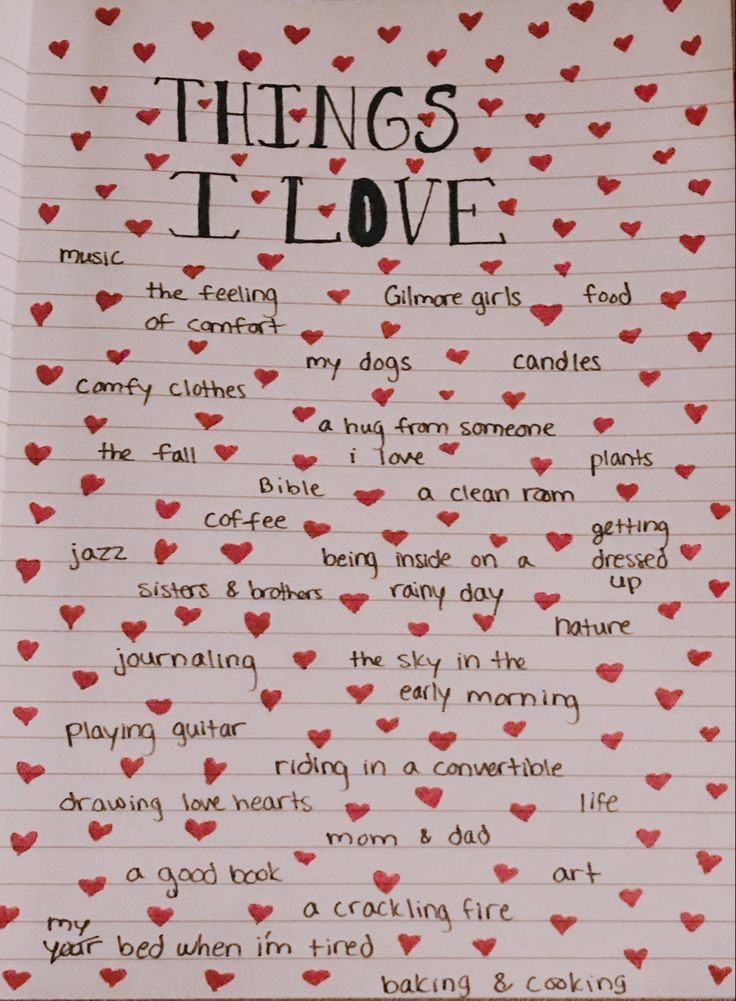 THINGS
I LOVE
music
the feeling Gilmore girls food
of comfort
my dogs candles
comfy clothes
a hug from someone
the fall i love plants
Bible a clean room
coffee getting
jazz being inside on a dressed
sisters & brothers rainy day up
nature
journaling the sky in the
early morning
playing guitar
riding in a convertible
drawing love hearts life
mom & dad
a good book art
a crackling fire
my
year bed when i'm tired
baking & cooking